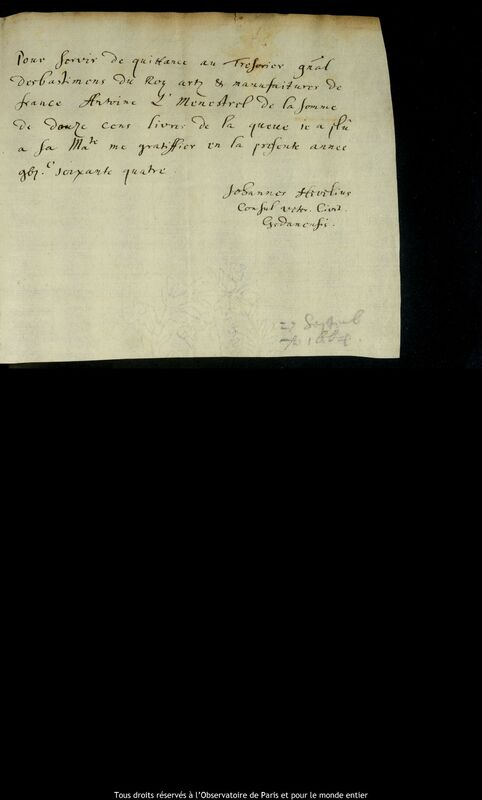 Pour servir de quittance au Tresorier gñal
desbastimens du Roy artz & manufaitures de
france Antoine L'Menestrel de la somme
de douze cens livres de la queue
a sa Mate me gratiffier en la presente annee
soixante quatre
Johannes Hevelius
Consul veter. Civit.
Gedanensis.
27 Septemb
1664.
Tous droits réservés à l'Observatoire de Paris et pour le monde entier